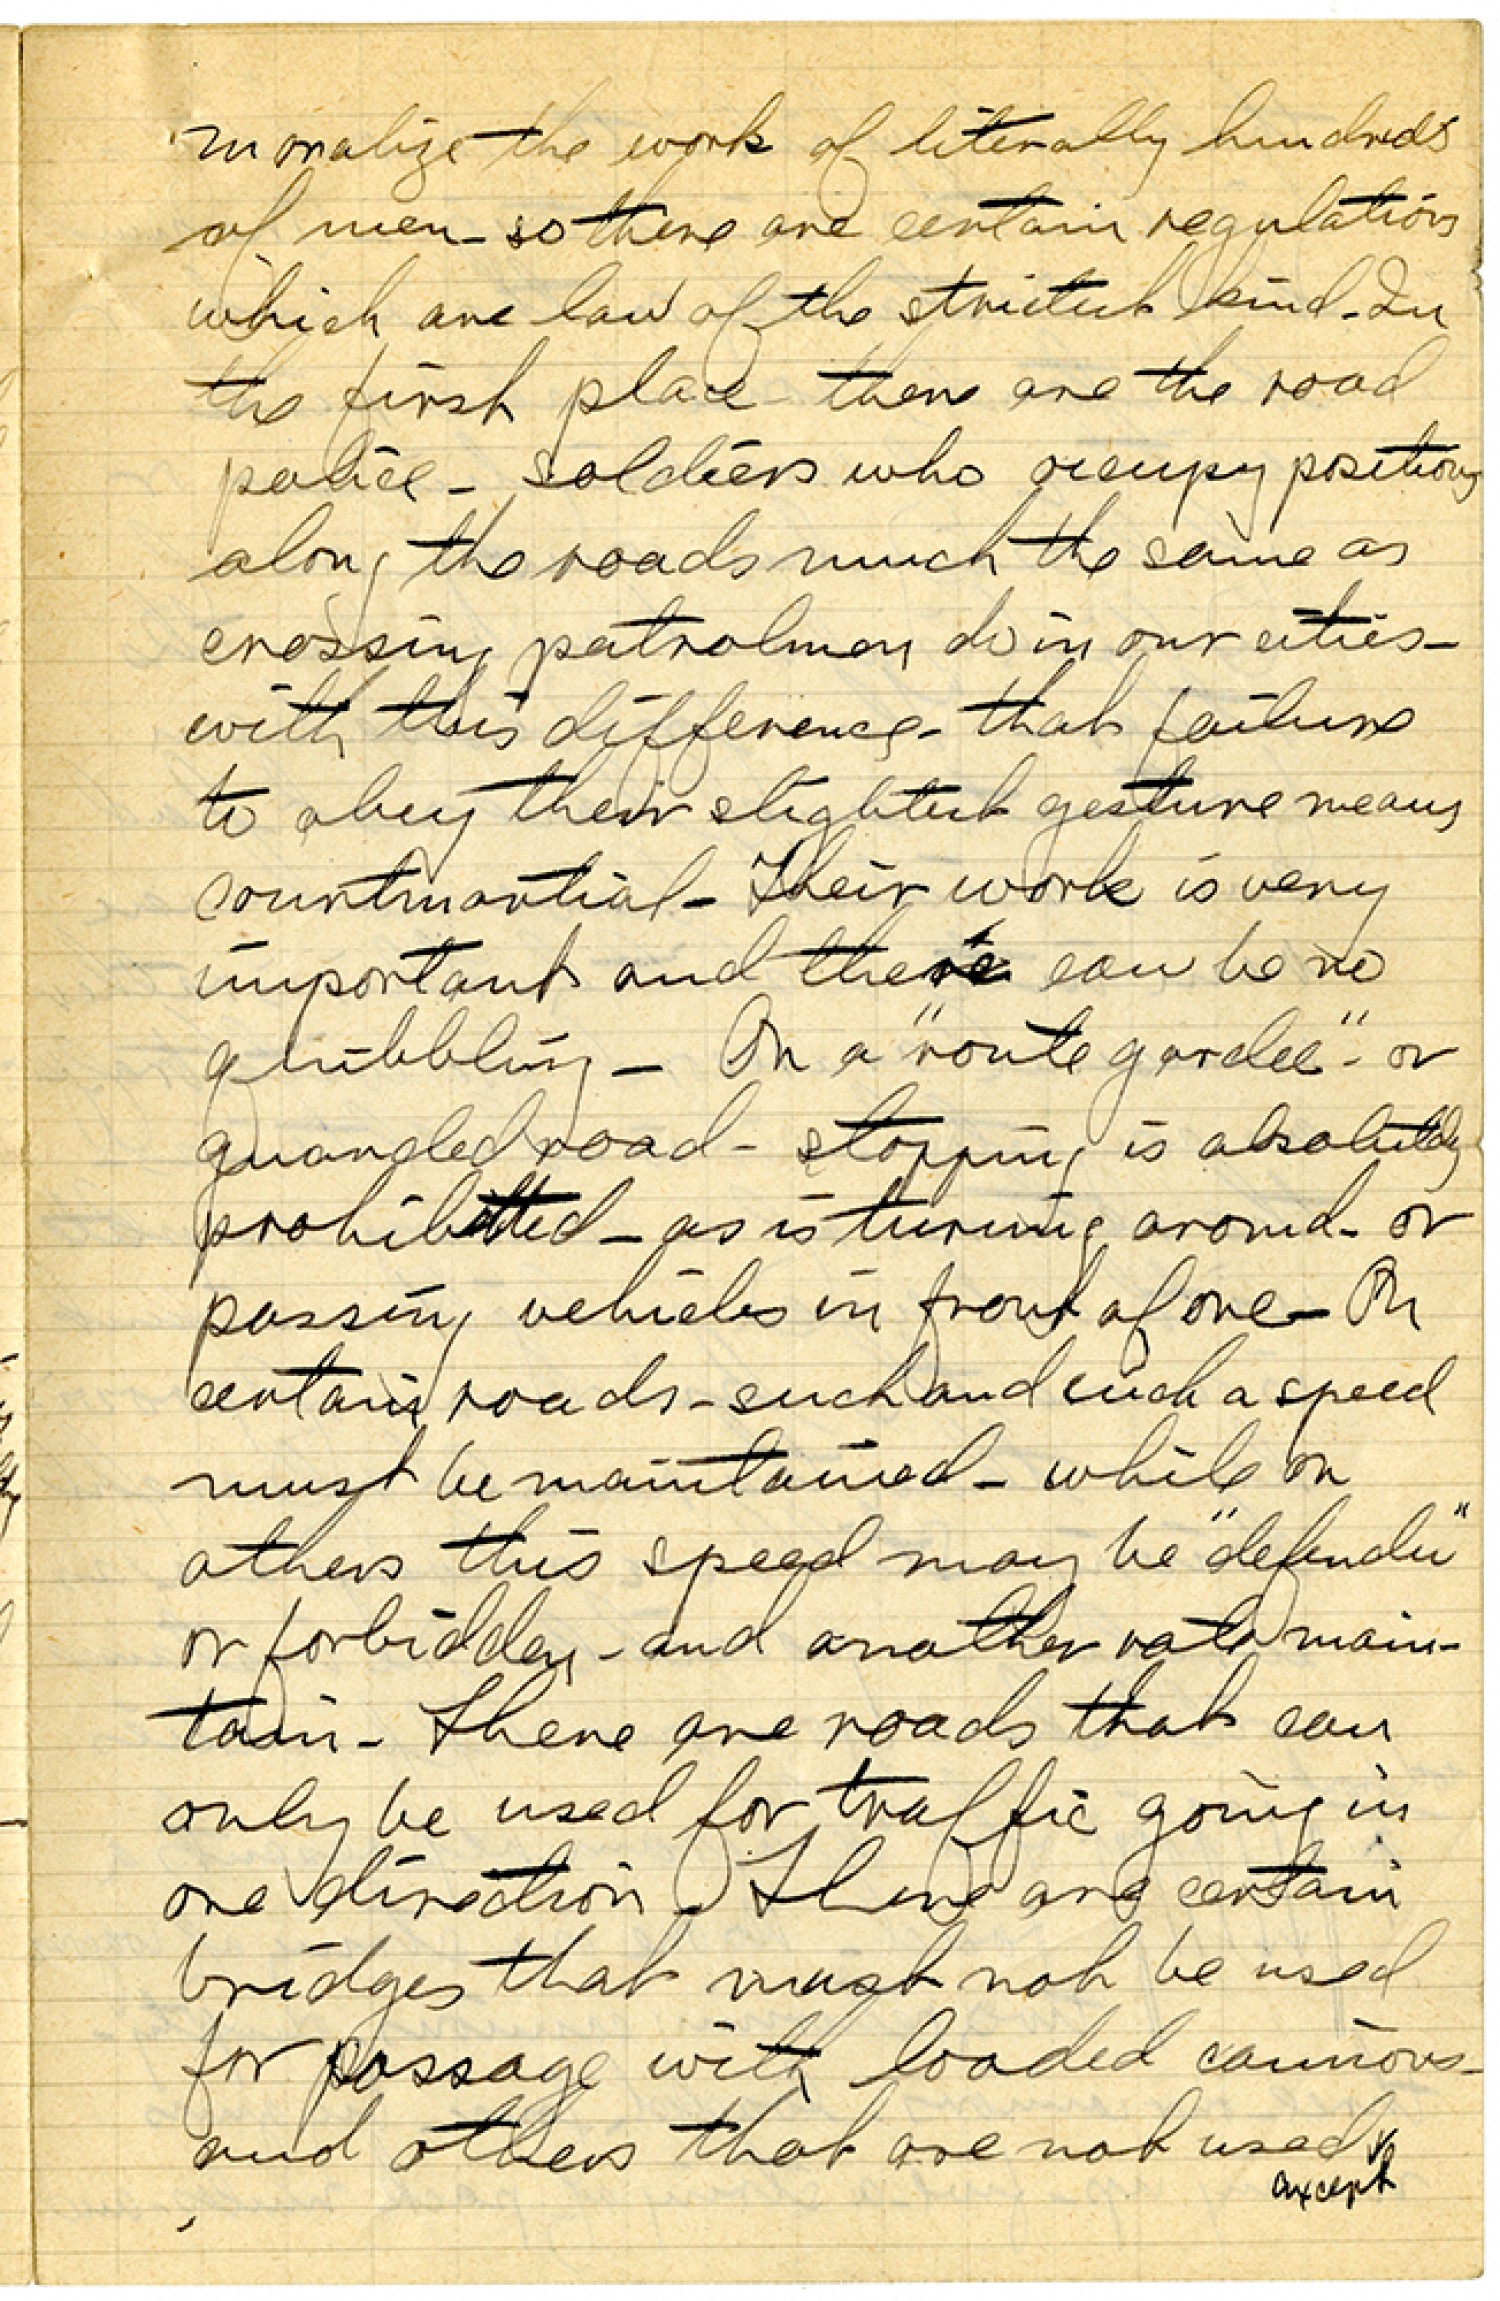 moralize the work of literally hundreds
of men - so there are certain regulations
which are law of the strictest kind - In
the first place - there are the road
police - soldiers who occupy positions
along the roads much the same as
crossing patrolmen do in our cities -
with this difference - that failure
to obey their slightest gesture means
courtmartial - Their work is very
important and there can be no
quibbling - On a "route gardee" - or
guarded road - stopping is absolutely
prohibitted - as is turning around - or
passing vehicles in front of one - On
certain roads - such and such a speed
must be maintained - while on
others this speed may be "defendu"
or forbidden - and another rate main-
tain - There are roads that can
only be used for traffic going in
one direction - There are certain
bridges that must not be used
for passage with loaded camions -
and others that are not used
except